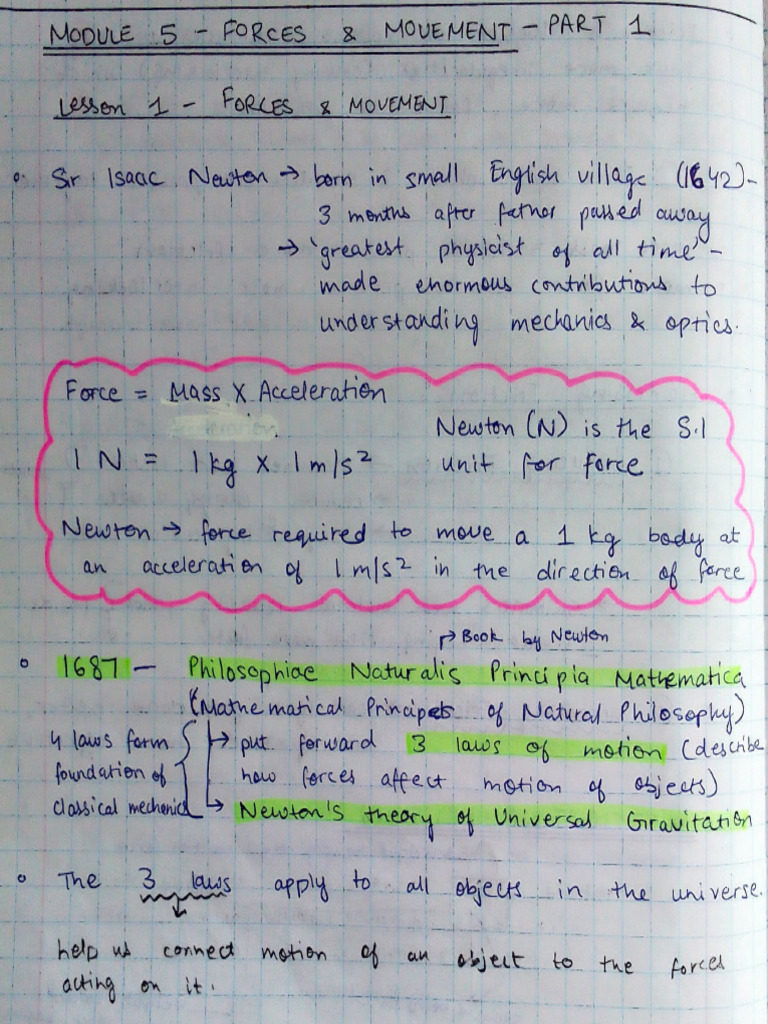 MODULE 5 - FORCES & MOVEMENT - PART 1
Lesson 1 - FORCES & MOVEMENT
Sir Isaac Newton → born in small English village (1642) -
3 months after father passed away
→ 'greatest physicist of all time' -
made enormous contributions to
understanding mechanics & optics.
Force = Mass X Acceleration
Newton (N) is the S.I
1 N = 1 kg x 1 m/s²
unit for force
Newton → force required to move a 1 kg body at
an acceleration of 1 m/s² in the direction of force
↱ Book by Newton
1687 - Philosophiae Naturalis Principia Mathematica
(Mathematical Principes of Natural Philosophy)
4 laws form
foundation of
classical mechanics
↳ put forward 3 laws of motion (describe
how forces affect motion of objects)
↳ Newton's theory of Universal Gravitation
The 3 laws apply to all objects in the universe.
help us connect motion of an object to the forces
acting on it.